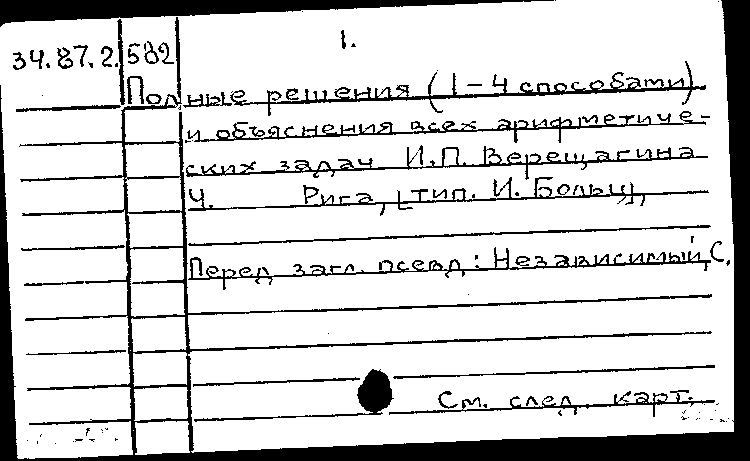 1.
34.87.2. 582
Полные решения (1-4 способами)
и объяснения всех арифметиче-
ских задач И.П. Верещагина
Ч. Рига, [тип. И. Больц],
Перед загл. псевд: Независимый, С.
См. след. карт.